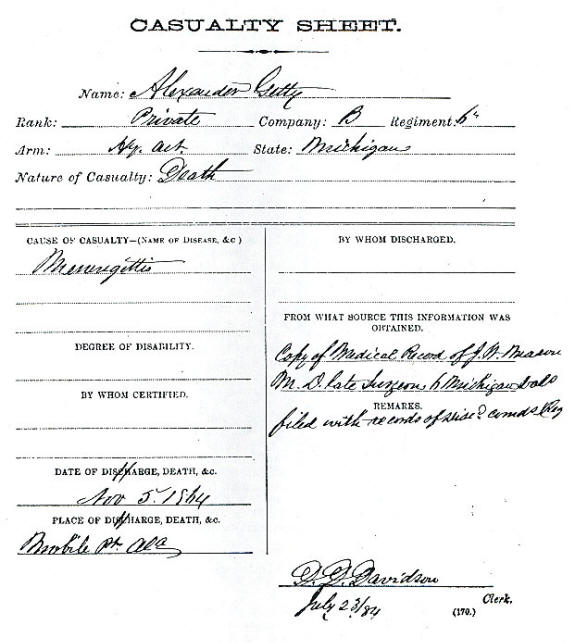 CASUALTY SHEET.
Name: Alexander Getty
Rank: Private Company: B Regiment: 6"
Arm: Hy. Art. State: Michigan
Nature of Casualty: Death
CAUSE OF CASUALTY—(NAME OF DISEASE, &c.)
Menengittis
DEGREE OF DISABILITY.
BY WHOM CERTIFIED.
DATE OF DISCHARGE, DEATH, &c.
Nov 5. 1864
PLACE OF DISCHARGE, DEATH, &c.
Mobile Pt. Ala
BY WHOM DISCHARGED.
FROM WHAT SOURCE THIS INFORMATION WAS
OBTAINED.
Copy of Medical Record of J. W. Mason
M. D. late Surgeon 6 Michigan Vols
REMARKS.
filed with records of
D. D. Davidson
July 23/84 (170.) Clerk.